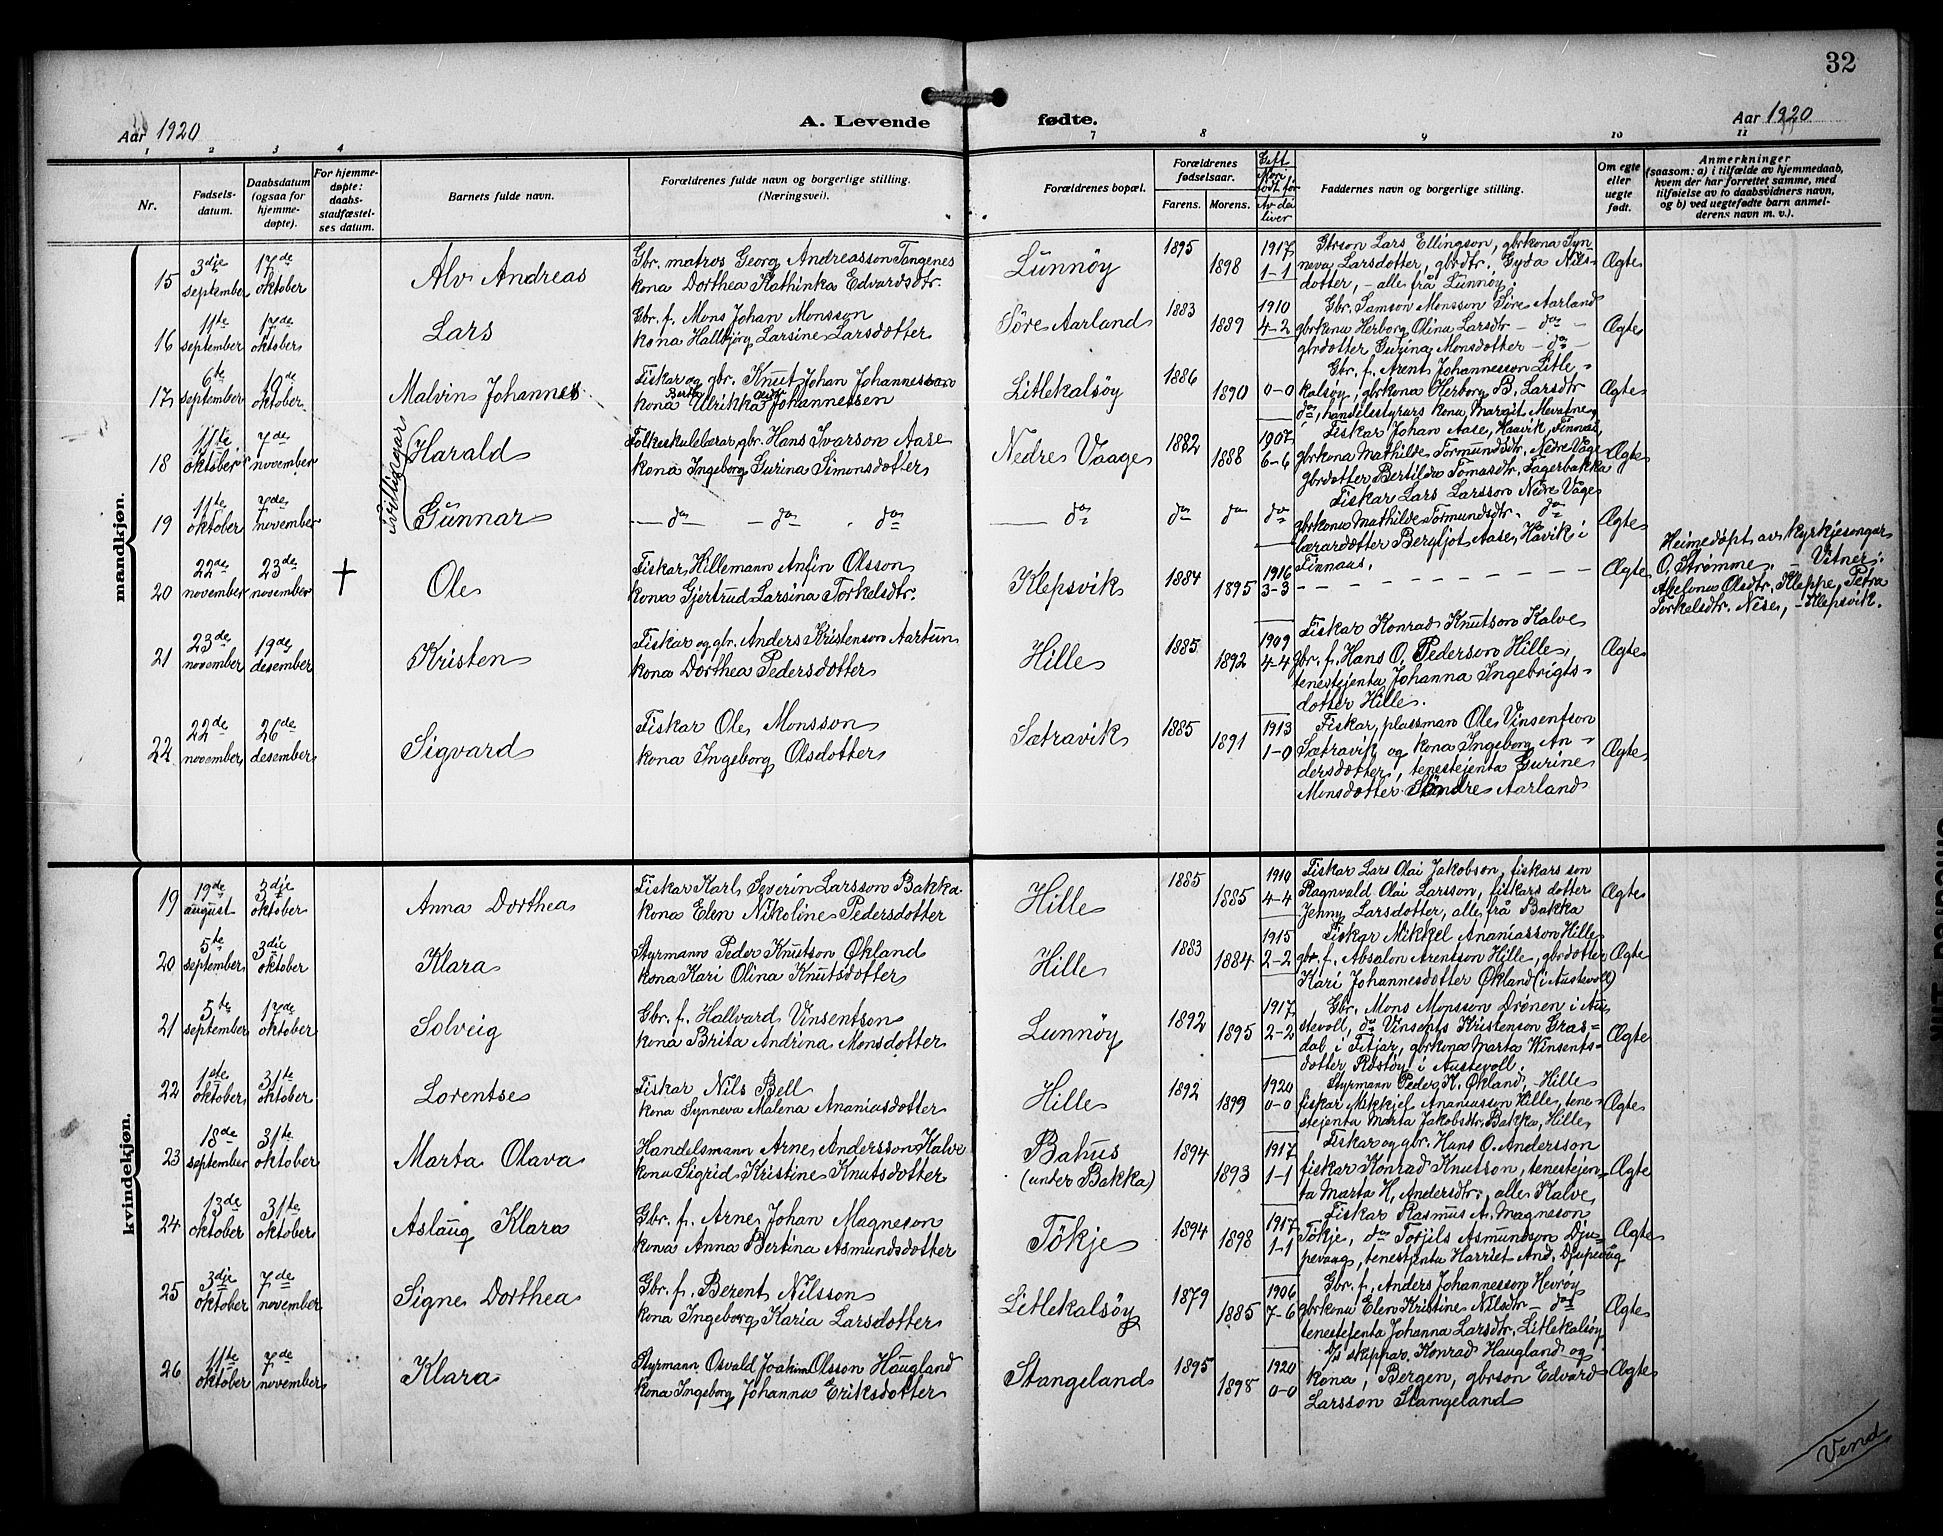 32
Aar 1920
A. Levende fødte.
Aar 1920
1 2 3 4 7 8 9 10 11
Nr.
Fødsels-
datum.
Daabsdatum
(ogsaa for
hjemme-
døpte).
For hjemme-
døpte:
daabs-
stadfæstel-
ses datum.
Barnets fulde navn.
Forældrenes fulde navn og borgerlige stilling.
(Næringsvei).
Forældrenes bopæl.
Forældrenes
fødselsaar.
Farens. Morens.
Gift
Av dei
liver
Faddernes navn og borgerlige stilling.
Om egte
eller
uegte
født.
Anmerkninger
(saasom: a) i tilfælde av hjemmedaab,
hvem der har forrettet samme, med
tilføielse av to daabsvidners navn,
og b) ved uegtefødte barn anmel-
derens navn m. v.).
mandkjøn.
15
3die
september
17de
oktober
Alv Andreas
Gbr. matros Georg Andreasson Tangenes
kona Dorthea Kathinka Edvardsdtr.
Lunnøy
1895
1898
1917
1-1
Gbrson Lars Ellingson, gbrkona Syn-
neva Larsdotter, gbrdtr. Gyda Nils-
dotter, - alle frå Lunnøy.
Ægte
16
11te
september
17de
oktober
Lars
Gbr. f. Mons Johan Monsson
kona Hallbjørg Larsine Larsdotter
Søre Aarland
1883
1889
1910
4-2
Gbr. Samson Monsson Søre Aarland
gbrkona Herborg Olina Larsdtr - do -
gbrdotter Gurina Monsdotter - do -
Ægte
17
6te
september
oktober
Malvin Johannes
Fiskar og gbr. Knut Johan Johannesson
kona Berta Ulrikka Johannessen
Litlekalsøy
1886
1890
0-0
Gbr. f. Arent Johannesson Litle-
kalsøy, gbrkona Herborg B. Larsdtr
do, handelsstyrars kona Margit
Ægte
tvillingar
18
11te
oktober
7de
november
Harald
Folkeskulelærar, gbr. Hans Ivarson Aase
kona Ingeborg Gurina Simonsdotter
Nedre Vaage
1882
1888
1907
6-6
Fiskar Johan Aase, Haavik, Finnaas,
gbrkona Mathilde Tormundsdtr. Nedre Våge
gbrdotter Bertilde Tomasdtr. Fagerbakka
Ægte
19
11te
oktober
7de
november
Gunnar
— do — do . do
— do
do do do
Fiskar Lars Larsson Nedre Våge
gbrkona Mathilde Tormundsdtr. do
lærardotter Bergljot Aase, Håvik i
Finnaas.
Ægte
20
22de
november
23de
november
+
Ole
Fiskar Hillemann Anfin Olsson
kona Gjertrud Larsina Torkelsdtr.
Klepsvik
1884
1895
1916
3-3
- - - - - - - - - -
Ægte
Heimedøpt av kyrkjesongar
O. Strømme. - Vitner:
Abelona Olsdtr. Kleppe, Petra
Torkelsdtr. Nese, - Klepsvik.
21
23de
november
19de
desember
Kristen
Fiskar og gbr. Anders Kristenson Aartun
kona Dorthea Pedersdotter
Hille
1885
1892
1909
4-4
Fiskar Konrad Knutson Kalve
gbr. f. Hans O. Pederson Hille,
tenestejenta Johanna Ingebrigts-
dotter Hille.
Ægte
22
22de
november
26de
desember
Sigvard
Fiskar Ole Monsson
kona Ingeborg Olsdotter
Sætravik
1885
1891
1913
1-0
Fiskar, plassman Ole Vinsentson
Sætravik og kona Ingeborg An-
dersdotter, tenestejenta Gurine
Monsdotter Søndre Aarland
Ægte
kvindekjøn.
19
19de
august
3die
oktober
Anna Dorthea
Fiskar Karl Severin Larsson Bakka
kona Elen Nikoline Pedersdotter
Hille
1885
1885
1910
4-4
Fiskar Lars Olai Jakobson, fiskars son
Ragnvald Olai Larsson, fiskars dotter
Jenny Larsdotter, alle frå Bakka
Ægte
20
5te
september
3die
oktober
Klara
Styrmann Peder Knutson Økland
kona Kari Olina Knutsdotter
Hille
1883
1884
1915
2-2
Fiskar Mikkel Ananiasson Hille
gbr. f. Absalon Arentson Hille, gbrdotter
Kari Johannesdotter Økland (i Austevoll)
Ægte
21
5te
september
17de
oktober
Solveig
Gbr. f. Hallvard Vinsentson
kona Brita Andrina Monsdotter
Lunnøy
1892
1895
1917
2-2
Gbr. Mons Monsson Drønen i Au-
stevoll, do Vinsents Kristenson Gras-
dal i Fitjar, gbrkona Marta Winsents-
dotter Rostøy i Austevoll.
Ægte
22
1ste
oktober
31te
oktober
Lorentse
Fiskar Nils Bell
kona Synneva Malena Ananiasdotter
Hille
1892
1899
1920
0-0
Styrmann Peder K. Økland, - Hille
fiskar Mikkjel Ananiasson Hille, tene-
stejenta Marta Jakobsdtr. Bakka, Hille
Ægte
23
18de
september
31te
oktober
Marta Olava
Handelsmann Arne Andersson Kalve
kona Sigrid Kristine Knutsdotter
Bahus
(under Bakka)
1894
1893
1917
1-1
Fiskar og gbr. Hans O. Andersson
fiskar Konrad Knutson, tenestejen-
ta Marta H. Andersdtr., alle Kalve
Ægte
24
13de
oktober
31te
oktober
Aslaug Klara
Gbr. f. Arne Johan Magneson
kona Anna Bertina Asmundsdotter
Tøkje
1894
1898
1917
1-1
Fiskar Rasmus A. Magneson
Tøkje, do Torjils Asmundson Dju-
pevaag, tenestjenta Harriet And. Djupevåg
Ægte
25
3die
oktober
7de
november
Signe Dorthea
Gbr. f. Berent Nilsson
kona Ingeborg Karia Larsdotter
Litlekalsøy
1879
1885
1906
7-6
Gbr. f. Anders Johannesson Hevrøy
gbrkona Elen Kristine Nilsdtr - do
tenestejenta Johanna Larsdtr. Litlekalsøy
Ægte
26
11te
oktober
7de
november
Klara
Styrmann Osvald Joakim Olsson Haugland
kona Ingeborg Johanna Eriksdotter
Stangeland
1895
1898
1920
0-0
skippar Konrad Haugland og
kona, Bergen, gbrson Edvard
Larsson Stangeland
Ægte
Vend